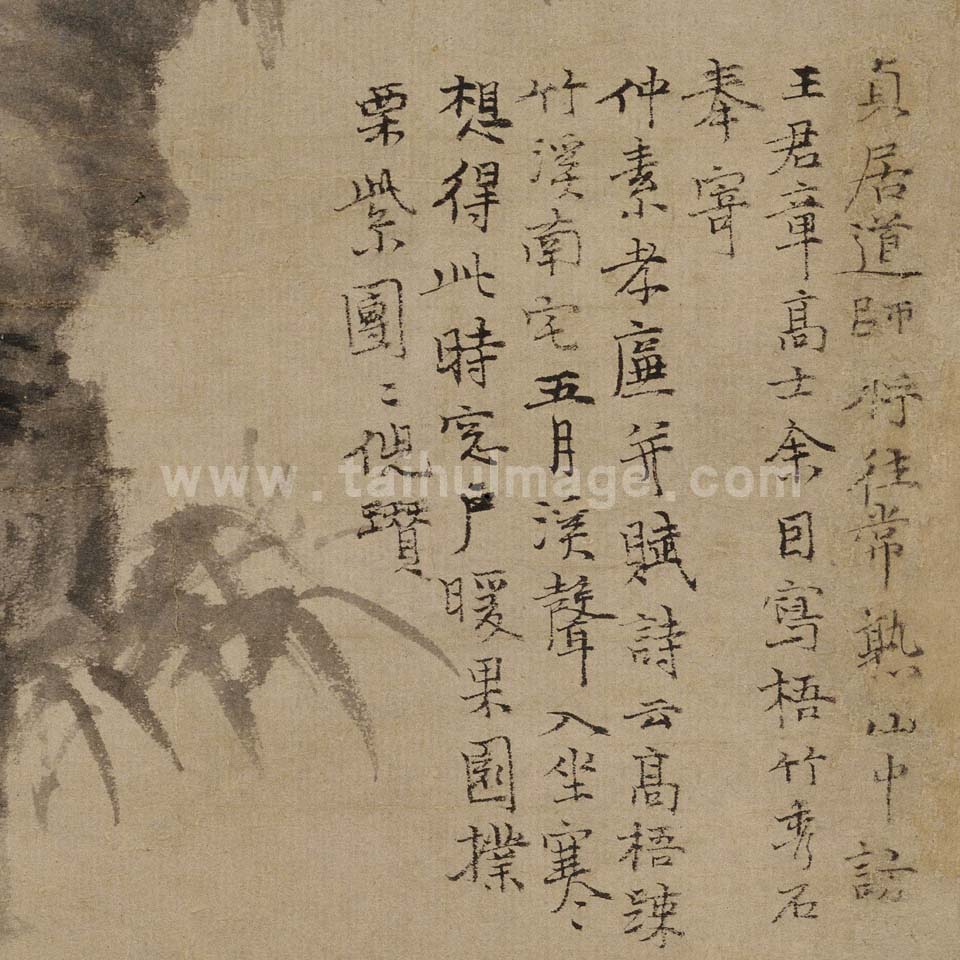 貞居道師將往常熟山中訪
王君章高士余因寫梧竹秀石
奉寄
仲素孝廉并賦詩云高梧疎
竹溪南宅五月溪聲入坐寒〻
想得此時窓戶暖果園撲
栗紫團〻倪瓚
www.taihuimage.com